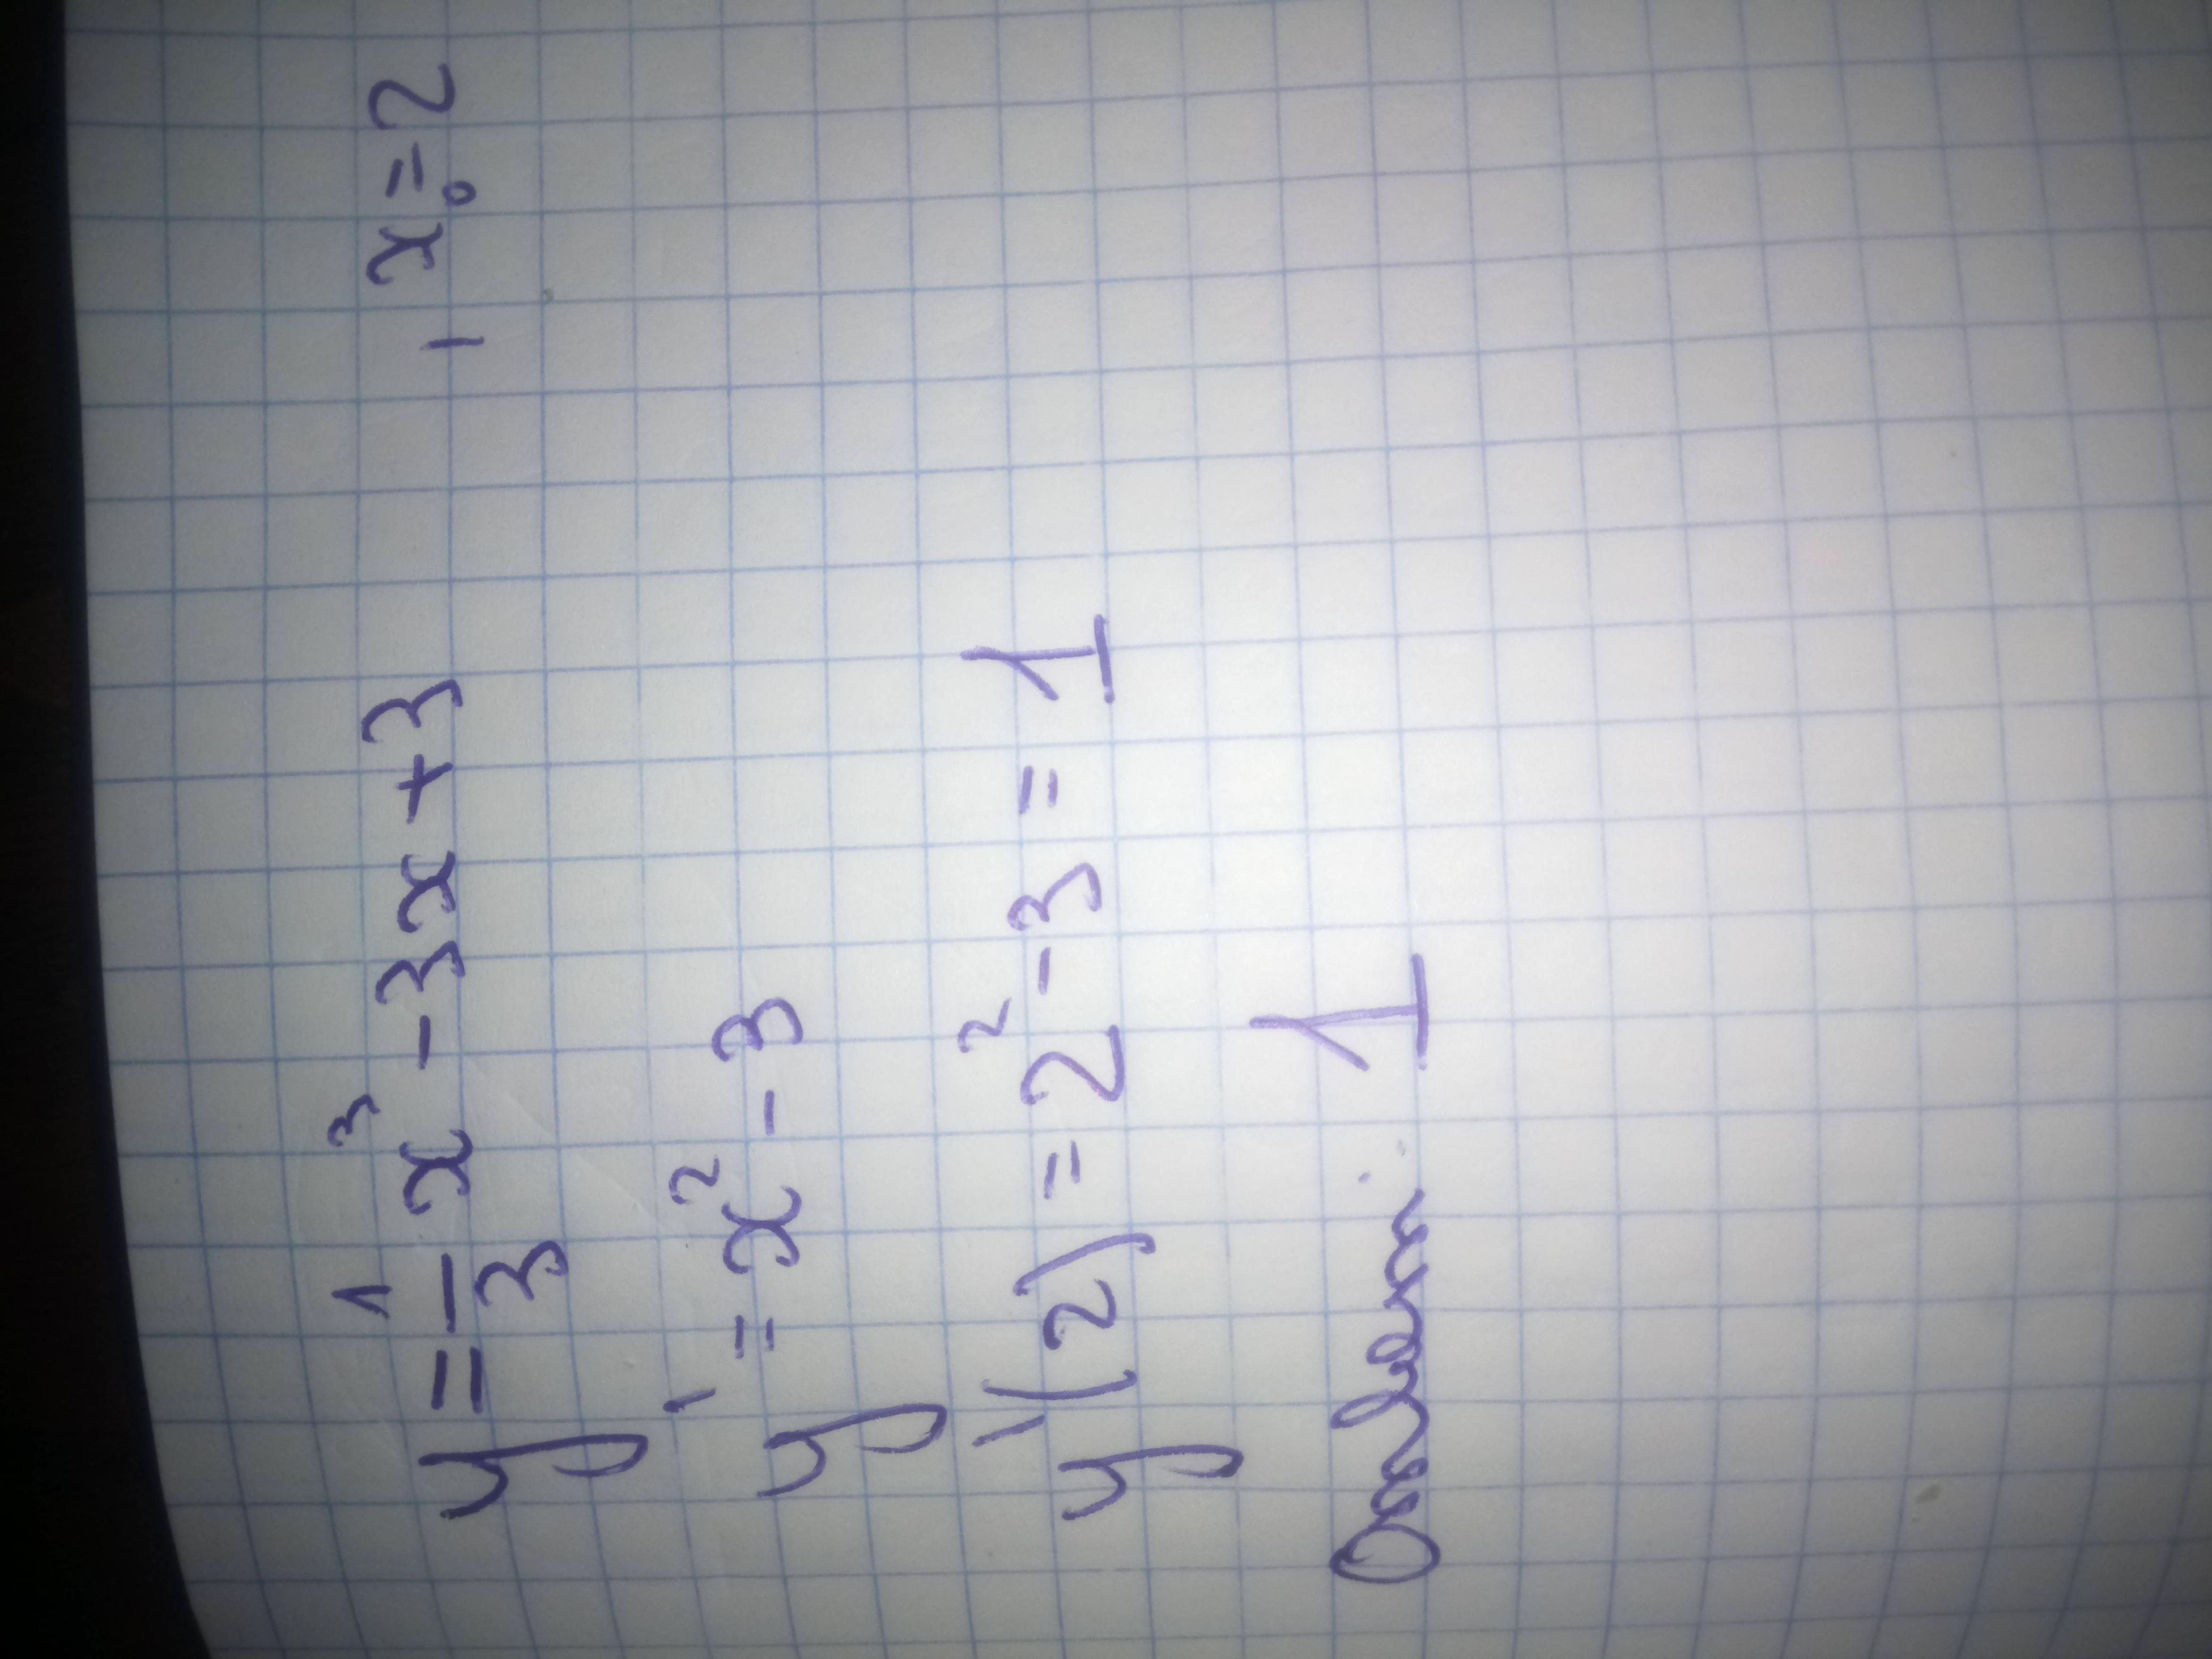 y = 1/3 x³ - 3x + 3 , x₀ = 2
y' = x² - 3
y'(2) = 2² - 3 = 1
Ответ: 1